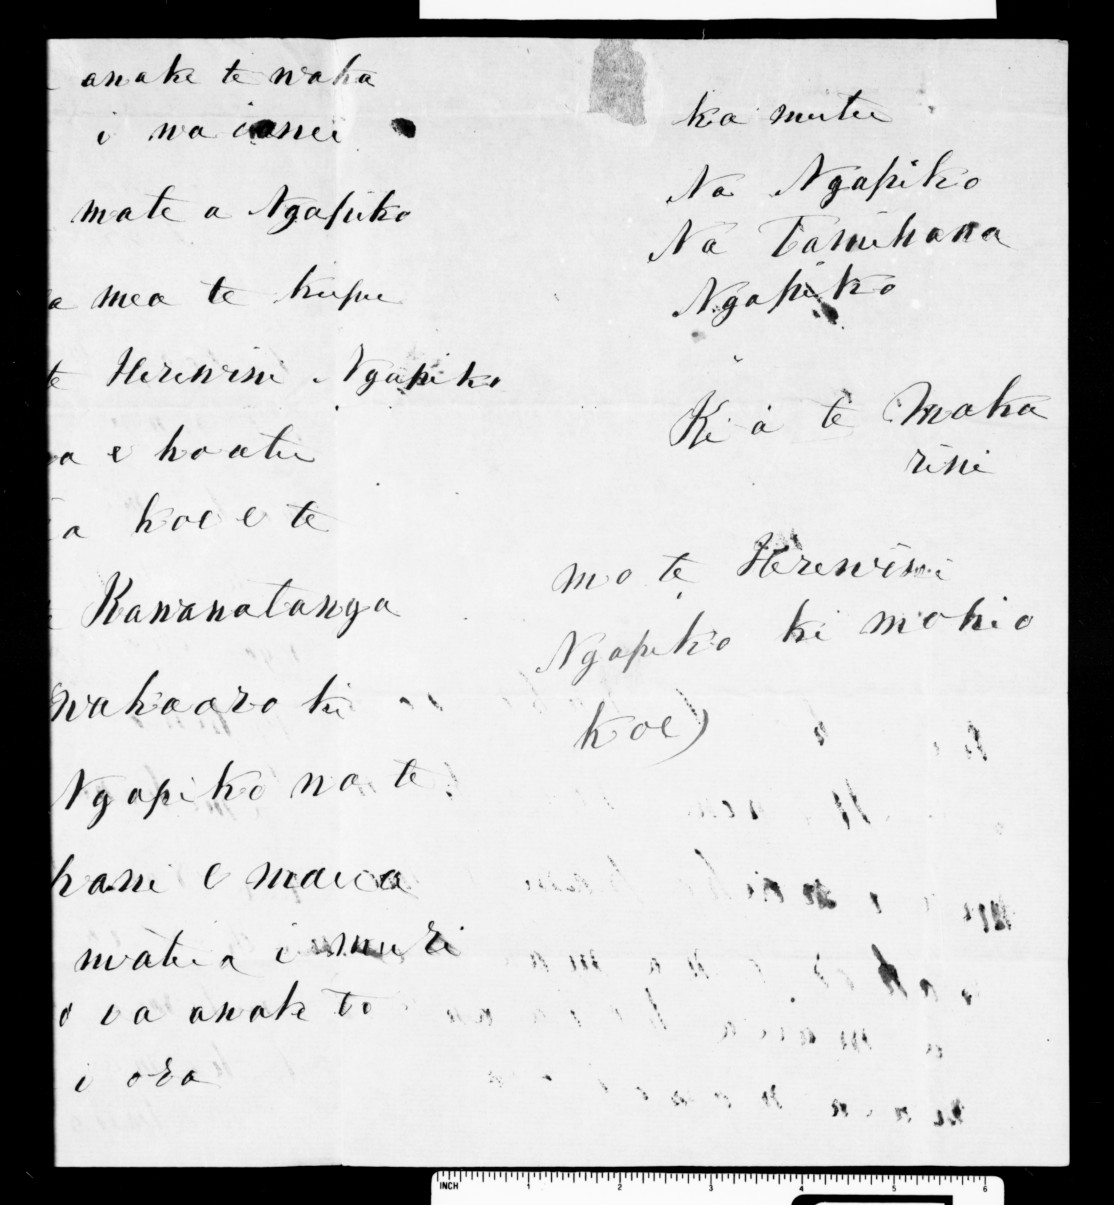 anake te waka
i
mate a Ngapiko
a mea te kupu
te Herewini Ngapiko
a e hoatu
a koe e te
Kawanatanga
wakaaro ki
Ngapiko na te
hani e maua
matua i muri
o ia anake to
i ora
ka mutu
Na Ngapiko
Na Tamihana
Ngapiko
Ki a te Maka
rini
mo te Herewini
Ngapiko ki mohio
koe)
INCH 1 2 3 4 5 6